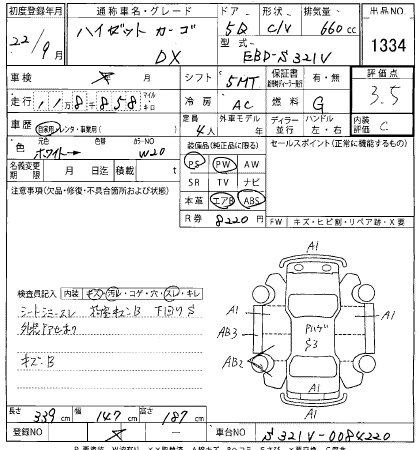 初度登録年月 通称車名・グレード ドア 形状 排気量 出品NO.
22/9月 ハイゼット カーゴ DX 5D C/V 660cc 1334
型式 EBD-S321V
車検 メ 月 シフト 5MT 保証書 有・無 評価点
走行 118858 マイル キロ 冷房 AC 燃料 G 3.5
車歴 自家用・レンタ・事業用( ) 定員 4人 外車モデル 年 ディーラー 並行 ハンドル 左・右 内装評価 C
色 元色 ホワイト→ 色替 カラーNO W20
装備品(純正品に限る) セールスポイント(正常に機能するもの)
名義変更期限 月 日迄 積載 t
PS PW AW
SR TV ナビ
本革 エアB ABS
R券 8220円
注意事項(欠品・修復・不具合箇所および状態)
FW キズ・ヒビ割・リペア跡・X要
検査員記入 内装 キズ・汚レ・コゲ・穴・スレ・キレ
シートシミ・スレ
キズB
A1
A1 A1
AB3
AB2
A1
長さ 339cm 幅 147cm 高さ 187cm
登録NO メ ー 車台NO S321V-0084220